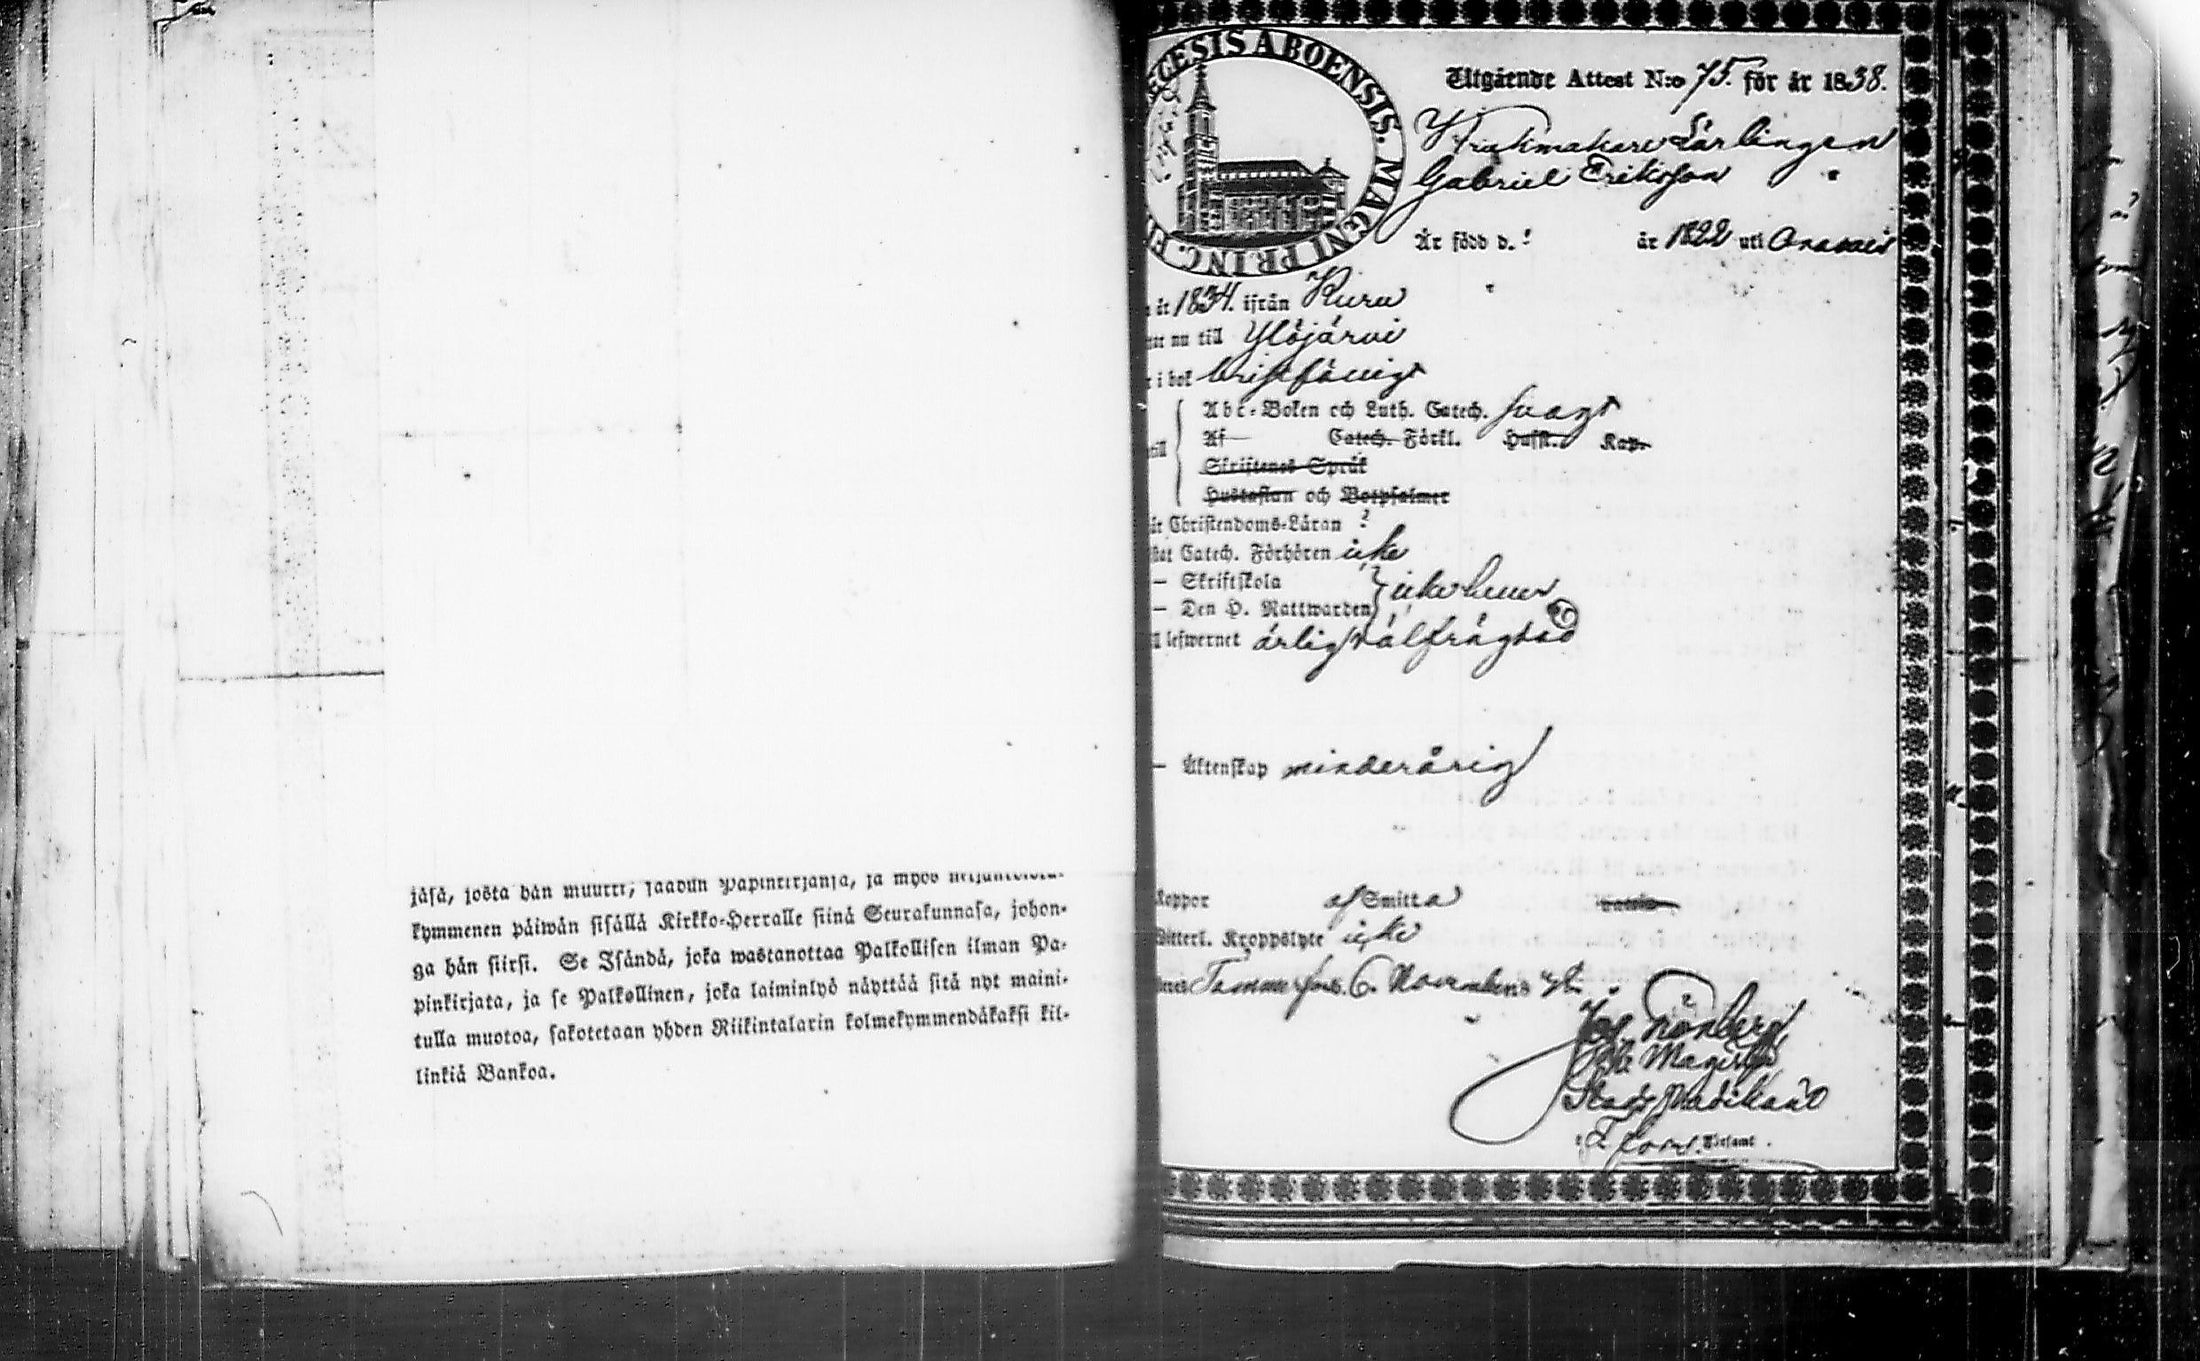 jåsa, josta hån muutti, saadun Papinkirjansa, ja myös neljäntoista-
kymmenen påiwån sisållå Kirkko-Herralle siinå Seurakunnasa, johon-
ga hån siirsi. Se Isåndå, joka wastanottaa Palkollisen ilman Pa-
pinkirjata, ja se Palkollinen, joka laiminlyö nåyttåå sitå nyt maini-
tulla muotoa, sakotetaan yhden Riikintalarin kolmekymmendåkaksi kil-
linkiå Bankoa.
ECESIS ABOENSIS. MAGNI PRINC. FI
Utgående Attest N:o 75. för år 1838.
Lärlingen
Gabriel Eriksson
År född d. ? år 1822 uti Oravais
år 1834. ifrån Kuru
nu till Ylöjärvi
i bok bristfälligt
Abc-Boken och Luth. Catech. svagt
Af Catech. Förkl. Hussl. Kap.
Skriftenes Språk
Hustaflan och Botpsalmer
Christendoms-Läran ?
Catech. Förhören icke
— Skriftskola
— Den H. Nattwarden icke heller
lefwernet ärlig välfrägdad
— Äktenskap minderårig
koppor af Smitta
Witterl. Kroppslyte icke
Tammerfors. 6. November